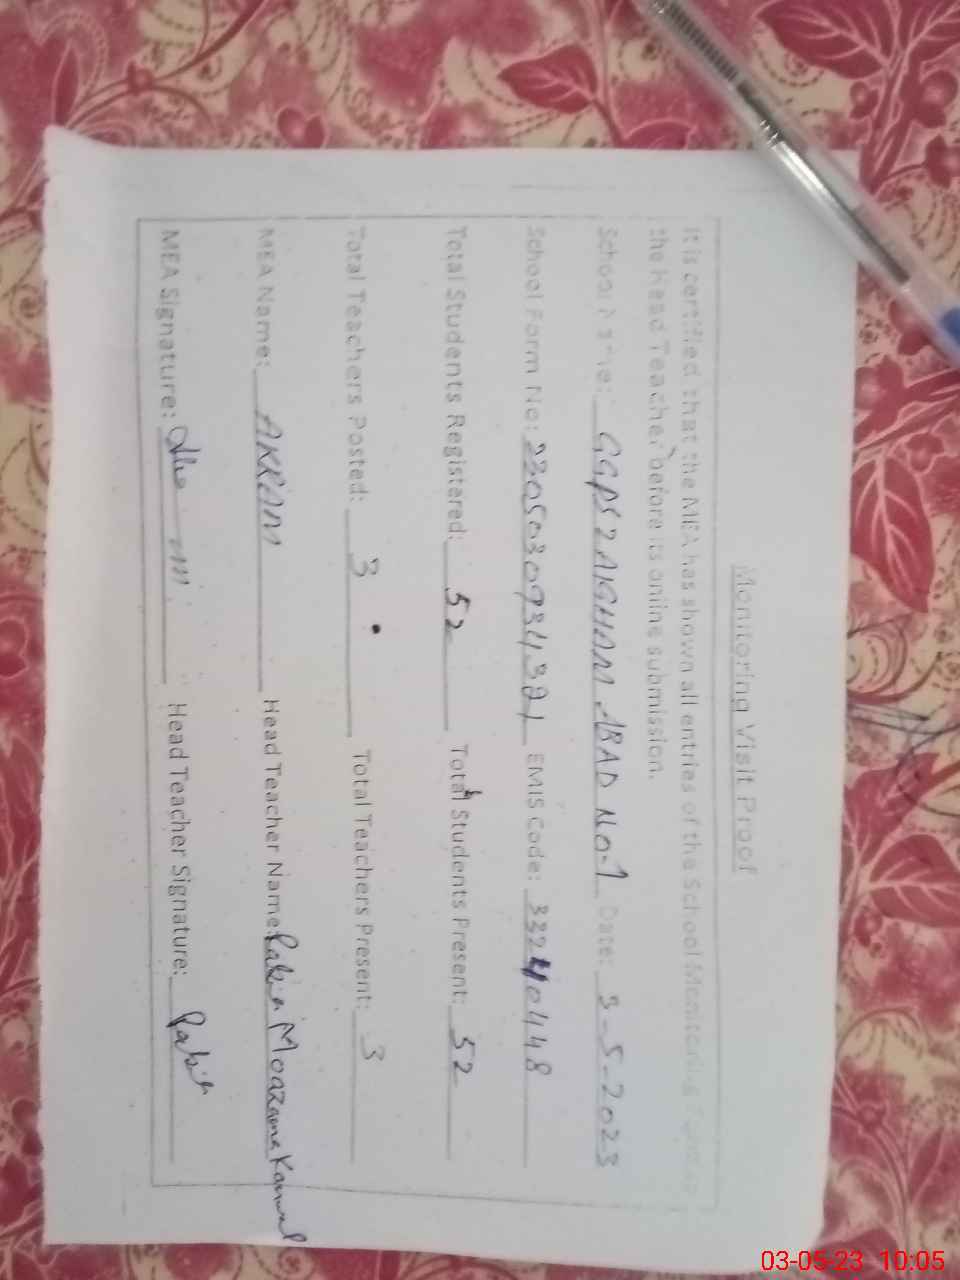 Monitoring Visit Proof
It is certified that the MEA has shown all entries of the School Monitoring
the Head Teacher before its online submission.
School Name: GGPS ABAD NO-1 Date: 3-5-2023
School Form No: EMIS Code: 33240448
Total Students Registered: 52 Total Students Present: 52
Total Teachers Posted: 3 Total Teachers Present: 3
MEA Name: AKRAM Head Teacher Name: Rabia Moazama Kanwal
MEA Signature: Head Teacher Signature: Rabia
03-05-23 10:05